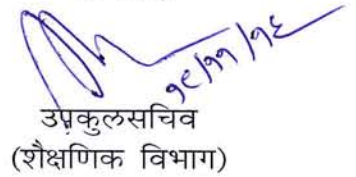 १८/११/१६
उपकुलसचिव
(शैक्षणिक विभाग)